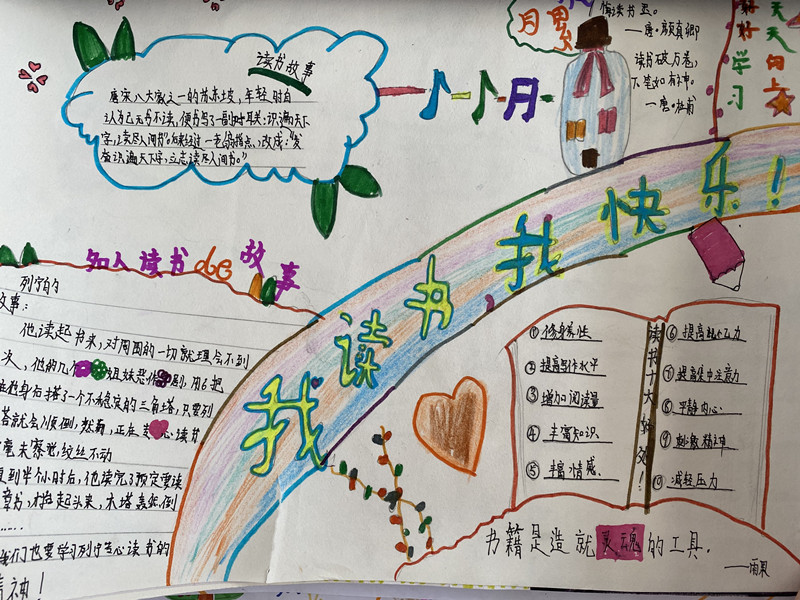 读书故事
唐宋八大家之一的苏东坡，年轻时自
认为已无书不读，便书写了一副对联：识遍天下
字，读尽人间书。如来经过一老翁指点，改成：“发
奋识遍天下字，立志读尽人间书。”
月累
悟读书迟。
——唐·颜真卿
读书破万卷，
下笔如有神。
——唐·杜甫
好好学习
天天向上
月
我读书我快乐！
名人读书de故事
列宁的
故事：
他读起书来，对周围的一切就理会不到
次，他的几个姐妹恶作剧，用6把
在他身后搭了个不稳定的三角塔，只要列
塔就会倾倒，然而，正在专心读书
毫未察觉，纹丝不动
直到半个小时后，他读完了预定要读
章书，才抬起头来，木塔轰然倒
……
我们也要学习列宁专心读书的
精神！
读书十大好处！
①修身养性
②提高写作水平
③增加阅读量
④丰富知识
⑤丰富情感
⑥提高
⑦提高集中注意力
⑧平静内心
⑨刺激精神
⑩减轻压力
书籍是造就灵魂的工具．
——雨果